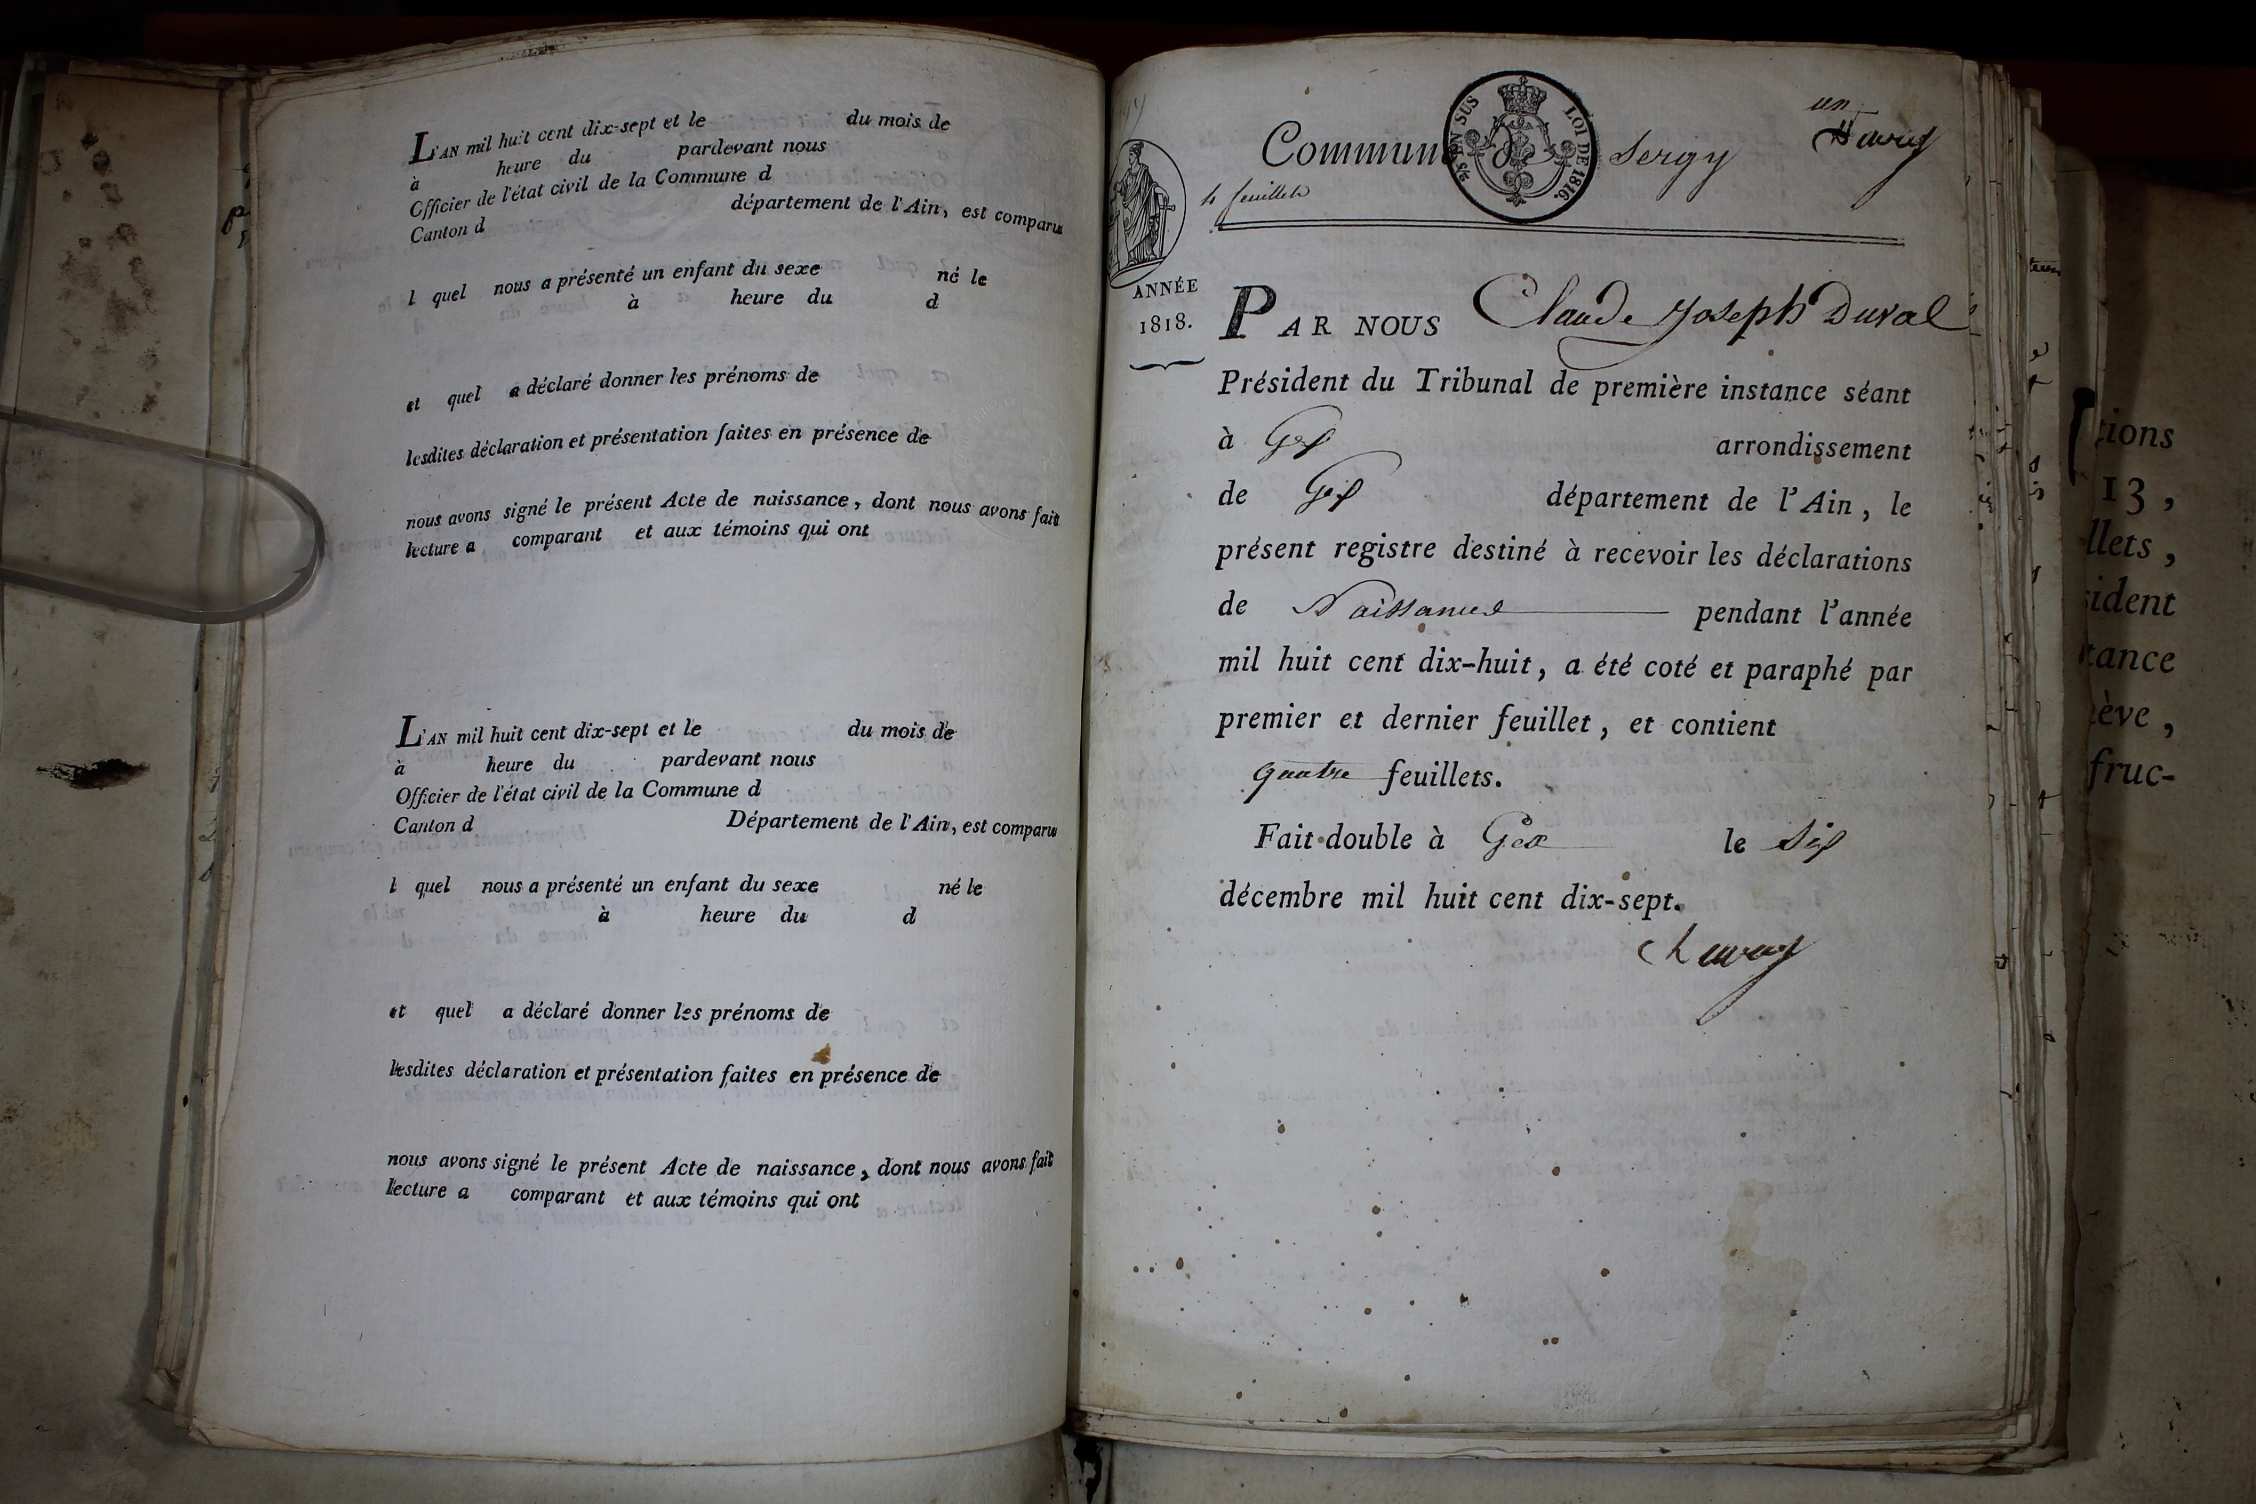 L'AN mil huit cent dix-sept et le du mois de
à heure du pardevant nous
Officier de l'état civil de la Commune d
Canton d département de l'Ain, est comparu
l quel nous a présenté un enfant du sexe né le
à heure du d
et quel a déclaré donner les prénoms de
lesdites déclaration et présentation faites en présence de
nous avons signé le présent Acte de naissance, dont nous avons fait
lecture a comparant et aux témoins qui ont
L'AN mil huit cent dix-sept et le du mois de
à heure du pardevant nous
Officier de l'état civil de la Commune d
Canton d Département de l'Ain, est comparu
l quel nous a présenté un enfant du sexe né le
à heure du d
et quel a déclaré donner les prénoms de
lesdites déclaration et présentation faites en présence de
nous avons signé le présent Acte de naissance, dont nous avons fait
lecture a comparant et aux témoins qui ont
un
Commune de Sergy
EN SUS LOI DE 1816.
4 feuillets
ANNÉE
1818.
PAR NOUS Claude Joseph Duval
Président du Tribunal de première instance séant
à Gex arrondissement
de Gex département de l'Ain, le
présent registre destiné à recevoir les déclarations
de Naissances pendant l'année
mil huit cent dix-huit, a été coté et paraphé par
premier et dernier feuillet, et contient
quatre feuillets.
Fait double à Gex le Six
décembre mil huit cent dix-sept.
tions
13,
llets,
sident
tance
ève,
fruc-